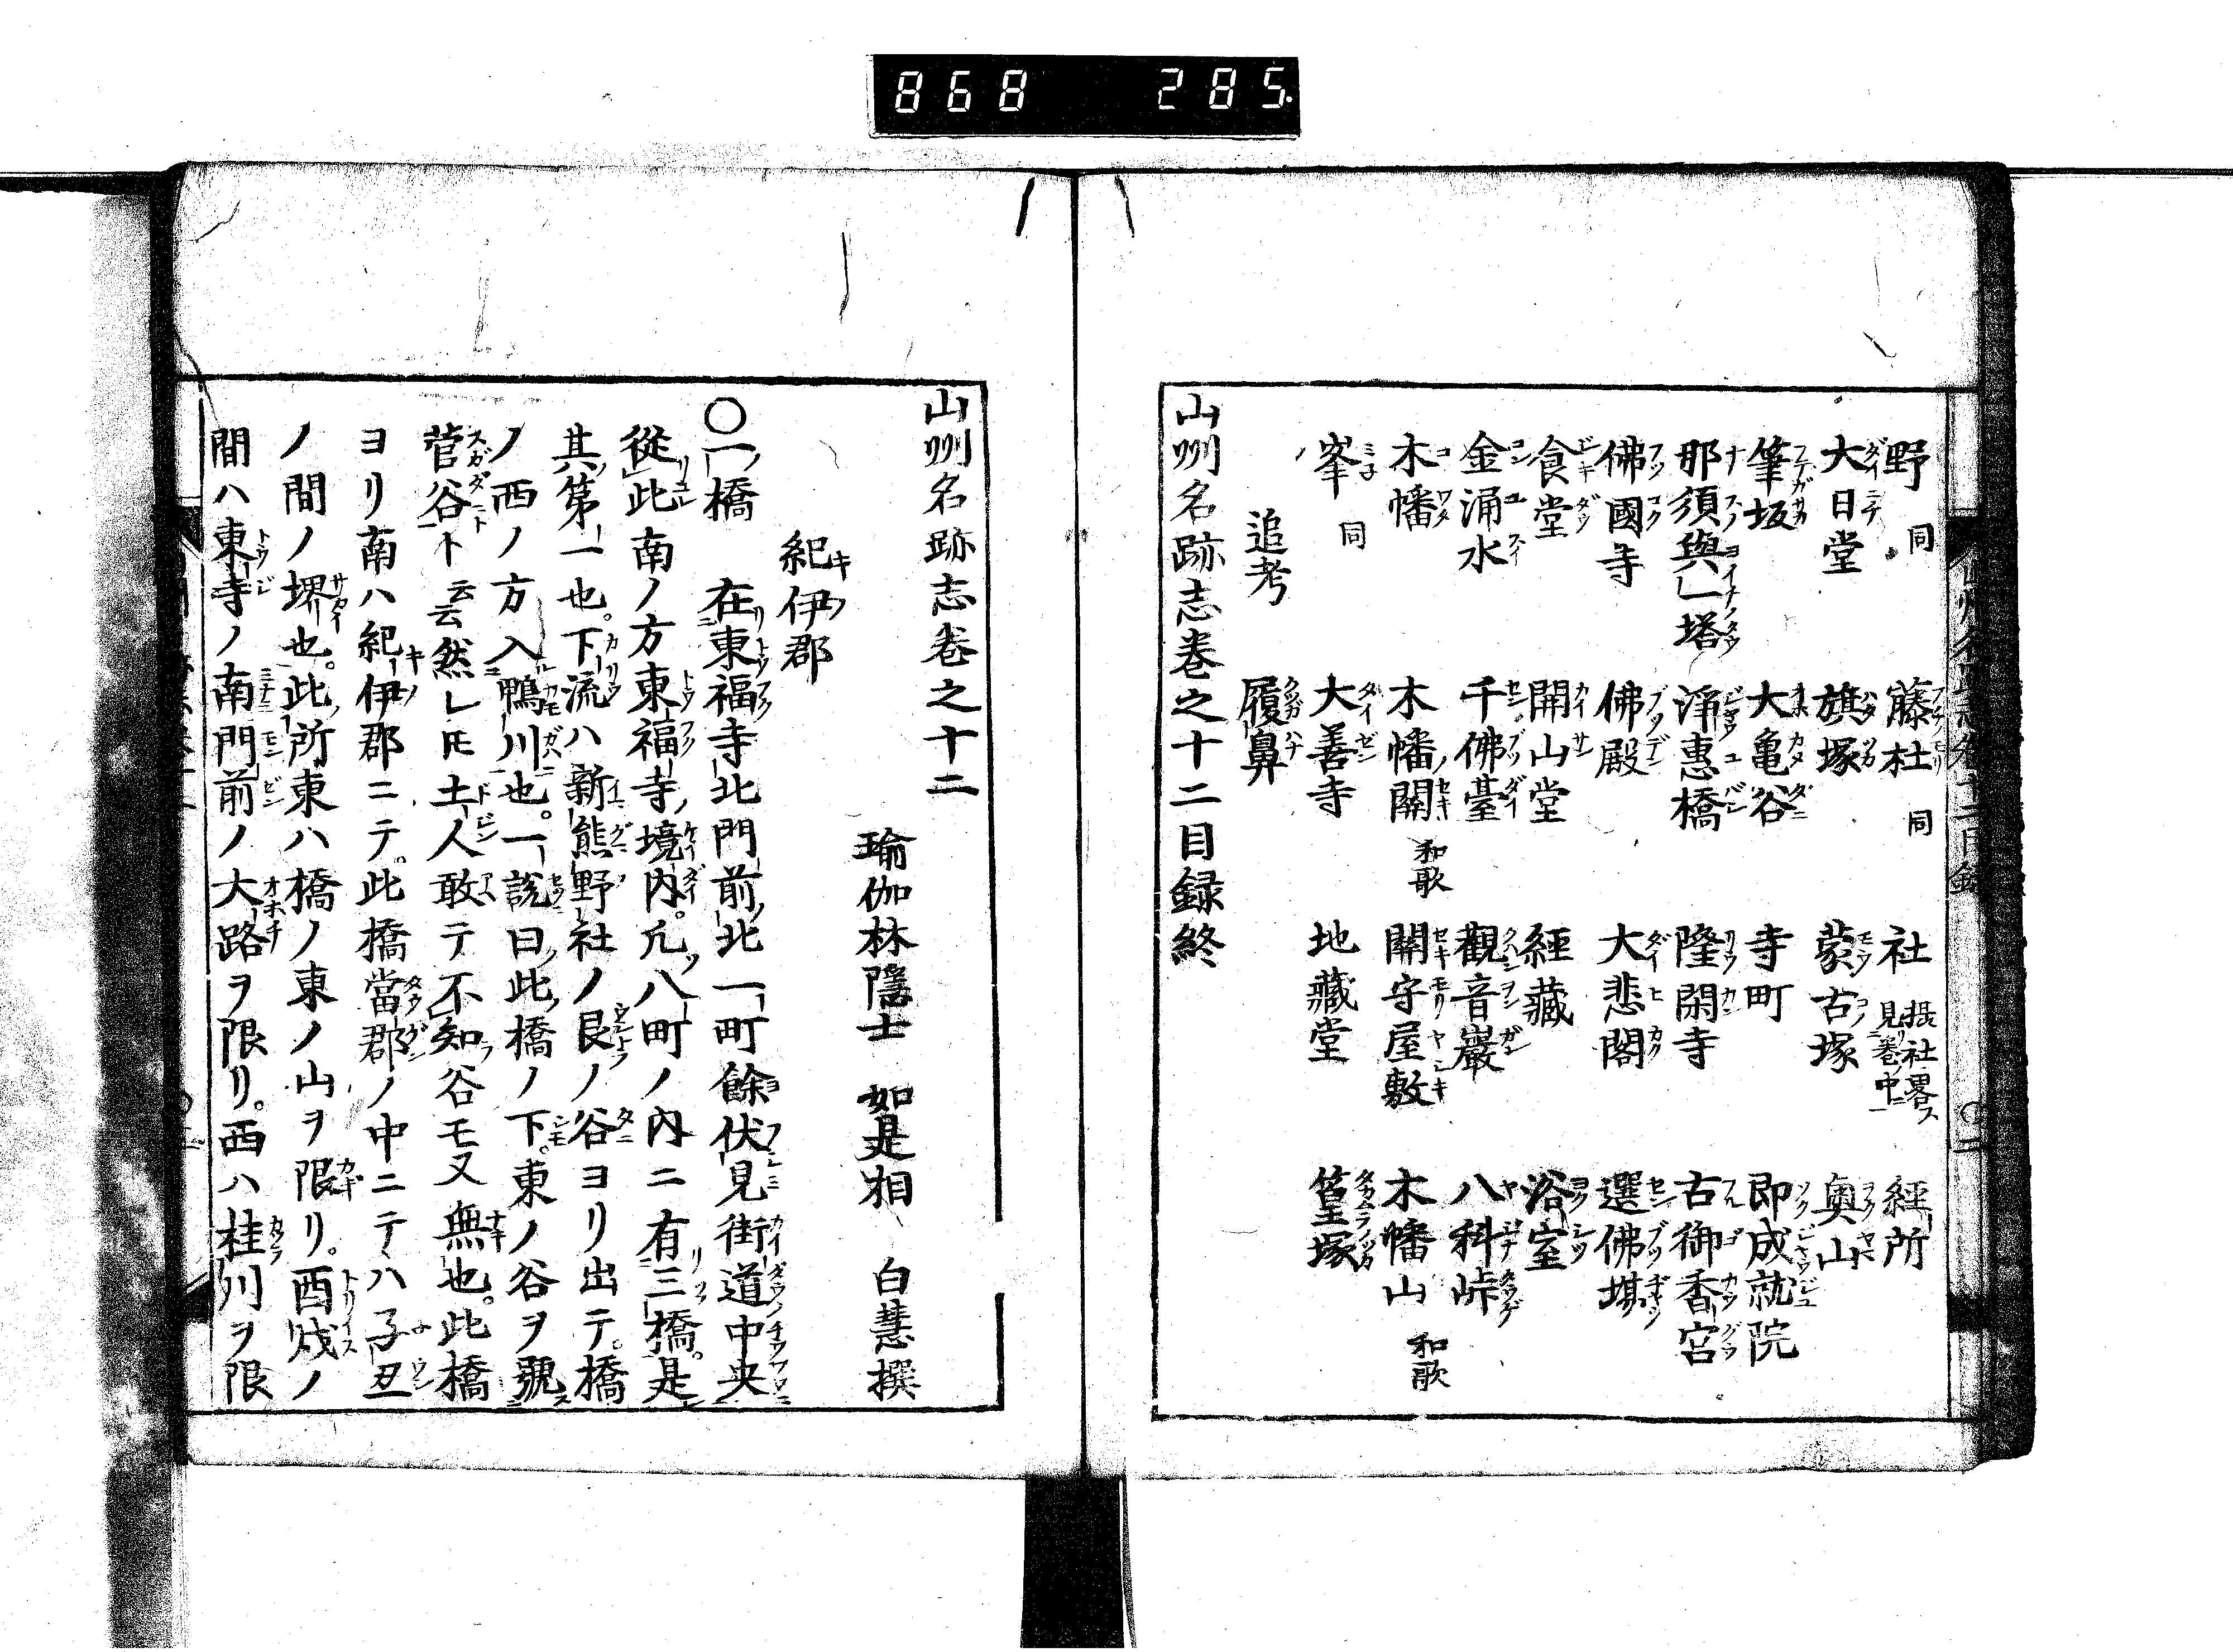 868 285.
野 同 藤杜 同 社 摂社畧ス見巻ノ中ニ 經所
大日堂 旗塚 蒙古塚 奥山
筆坂 大亀谷 寺町 即成就院
那須與一塔 淨惠橋 隆閑寺 古御香宮
佛國寺 佛殿 大悲閣 選佛堪
食堂 開山堂 經藏 浴室
金涌水 千佛臺 觀音巖 八科峠
木幡 木幡關 和歌 關守屋敷 木幡山 和歌
峯 同 大善寺 地藏堂 篁塚
追考 履鼻
山州名跡志巻之十二目録終
山州名跡志巻之十二
瑜伽林隱士 如是相 白慧撰
紀伊郡
〇一ノ橋 在東福寺北門前ノ北一町餘伏見街道中央
從此南ノ方東福寺ノ境内。凡ソ八町ノ内ニ有三橋。是レ
其第一也。下流ハ新熊野社ノ艮ノ谷ヨリ出テ。橋
ノ西ノ方入鴨川也。一說曰此ノ橋ノ下。東ノ谷ヲ號
菅谷ト云云然レ𪜈土人敢テ不知谷モ又無也。此橋
ヨリ南ハ紀伊郡ニテ。此橋當郡ノ中ニテハ子丑
ノ間ノ堺也。此ノ所東ハ橋ノ東ノ山ヲ限リ。酉戌ノ
間ハ東寺ノ南門前ノ大路ヲ限リ。西ハ桂川ヲ限